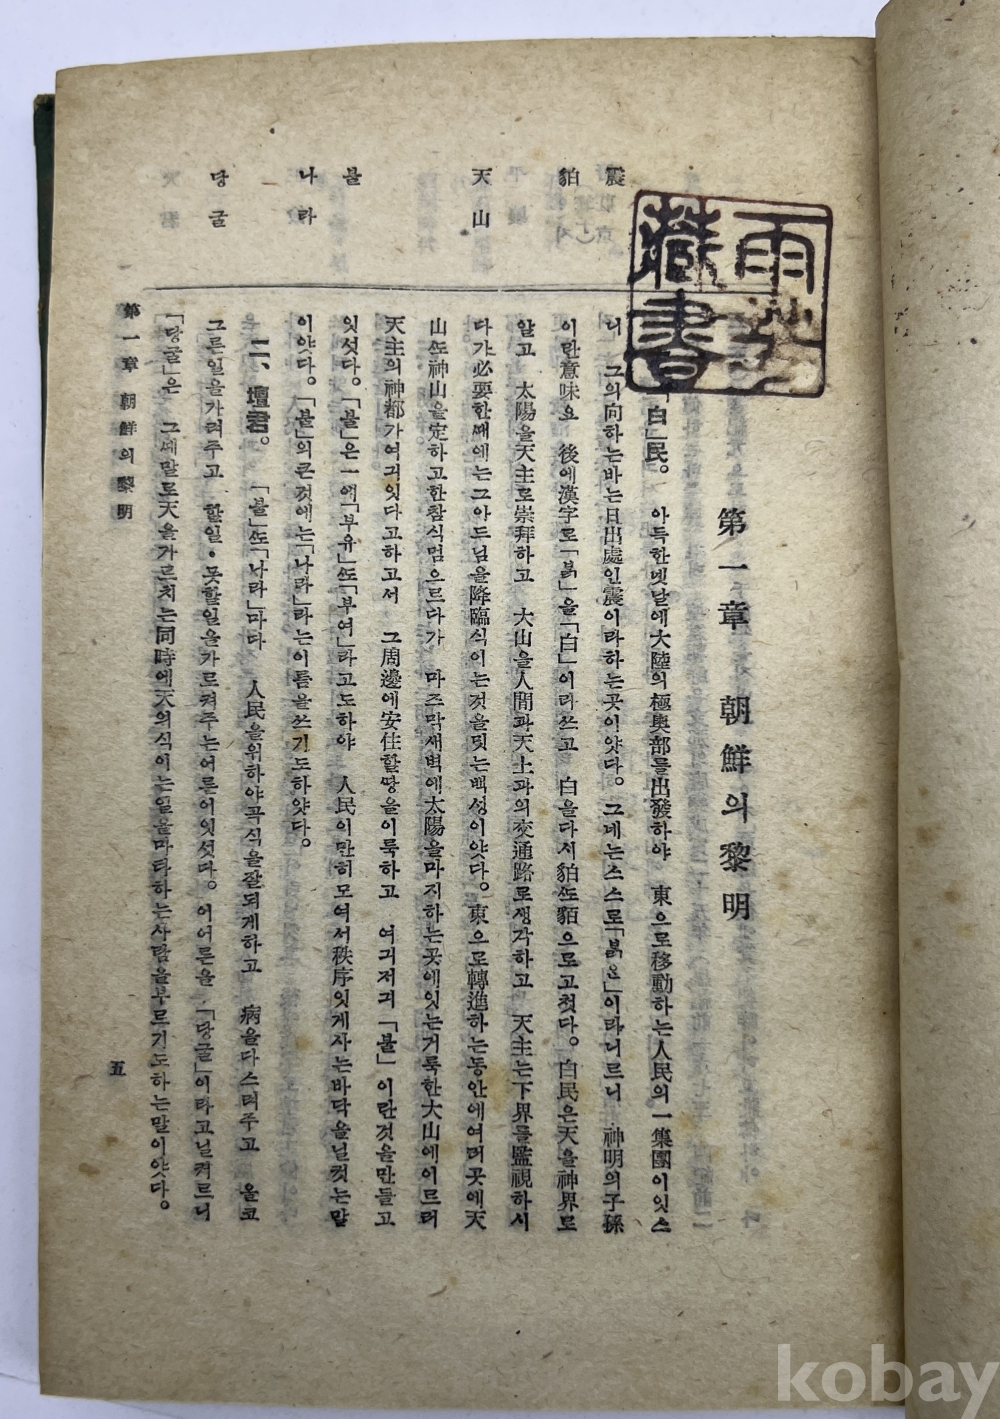 第一章 朝鮮의黎明
「白」民。 아득한녯날에大陸의極奧部를出發하야 東으로移動하는人民의一集團이잇스
니 그의向하는바는日出處인震이라하는곳이얏다。그네는스스로「붉은」이라니르니 神明의子孫
이란意味요 後에漢字로「붉」을「白」이라쓰고 白을다시貊또貊으로고첫다。白民은天을神界로
알고 太陽을天主로崇拜하고 大山을人間과天上과의交通路로생각하고 天主는下界를監視하시
다가必要한째에는그아드님을降臨식이는것을밋는백성이얏다。東으로轉進하는동안에여러곳에天
山또神山을定하고한참식멈으르다가 마즈막새벽에太陽을마지하는곳에잇는거룩한大山에이르러
天主의神都가여긔잇다고하고서 그周邊에安住할땅을이룩하고 여긔저긔「불」이란것을만들고
잇섯다。「불」은一에「부유」또「부여」라고도하야 人民이만히모여서秩序잇게사는바닥을닐컷는말
이얏다。「불」의큰것에는「나라」라는이름을쓰기도하얏다。
二、壇君。 「불」또「나라」마다 人民을위하야곡식을잘되게하고 病을다스려주고 올코
그른일을가려주고 할일・못할일을가르켜주는어른이잇섯다。이어른을「당굴」이라고닐커르니
「당굴」은 그쌔말로天을가르치는同時에天의식이는일을마타하는사람을부르기도하는말이얏다。
震
貊
天山
불
나라
당굴
第一章 朝鮮의黎明
五
藏書
kobay